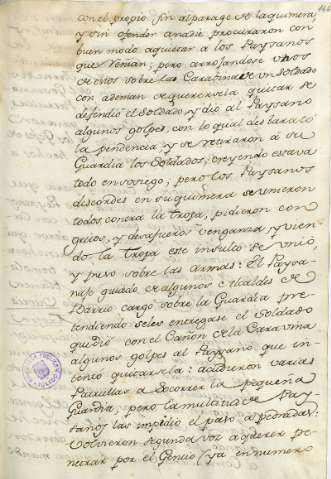 con el propio fin al parage de la quimera
y sin ofender a nadie procuraron con
buen modo aquietar a los Paysanos
que reñian; pero arrojandose unos
de ellos sobre la Carabina de un Soldado
con ademan de querersela quitar se
defendió el Soldado, y dió al Paysano
algunos golpes, con lo qual desbarató
la pendencia y se retiraron a su
Guardia los Soldados, creyendo estava
todo en sosiego, pero los Paysanos
discordes en su quimera se unieron
todos contra la tropa, pidieron con
gritos, y desafueros venganza, y vien-
do la Tropa este insulto se unió,
y puso sobre las armas: El Paysa-
nage guiado de algunos Alcaldes de
Barrio cargó sobre la Guardia pre-
tendiendo se les entregase el Soldado
que dió con el Cañon de la Caravina
algunos golpes al Paysano que in-
tentó quitarsela: acudieron varias
Patrullas a Socorrer la pequeña
Guardia, pero la multitud de Pay-
sanos las impidió el paso a pedradas:
Volvieron segunda vez a querer pe-
netrar por el Gentio (ya en numero